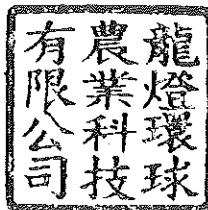 龍燈環球
農業科技
有限公司